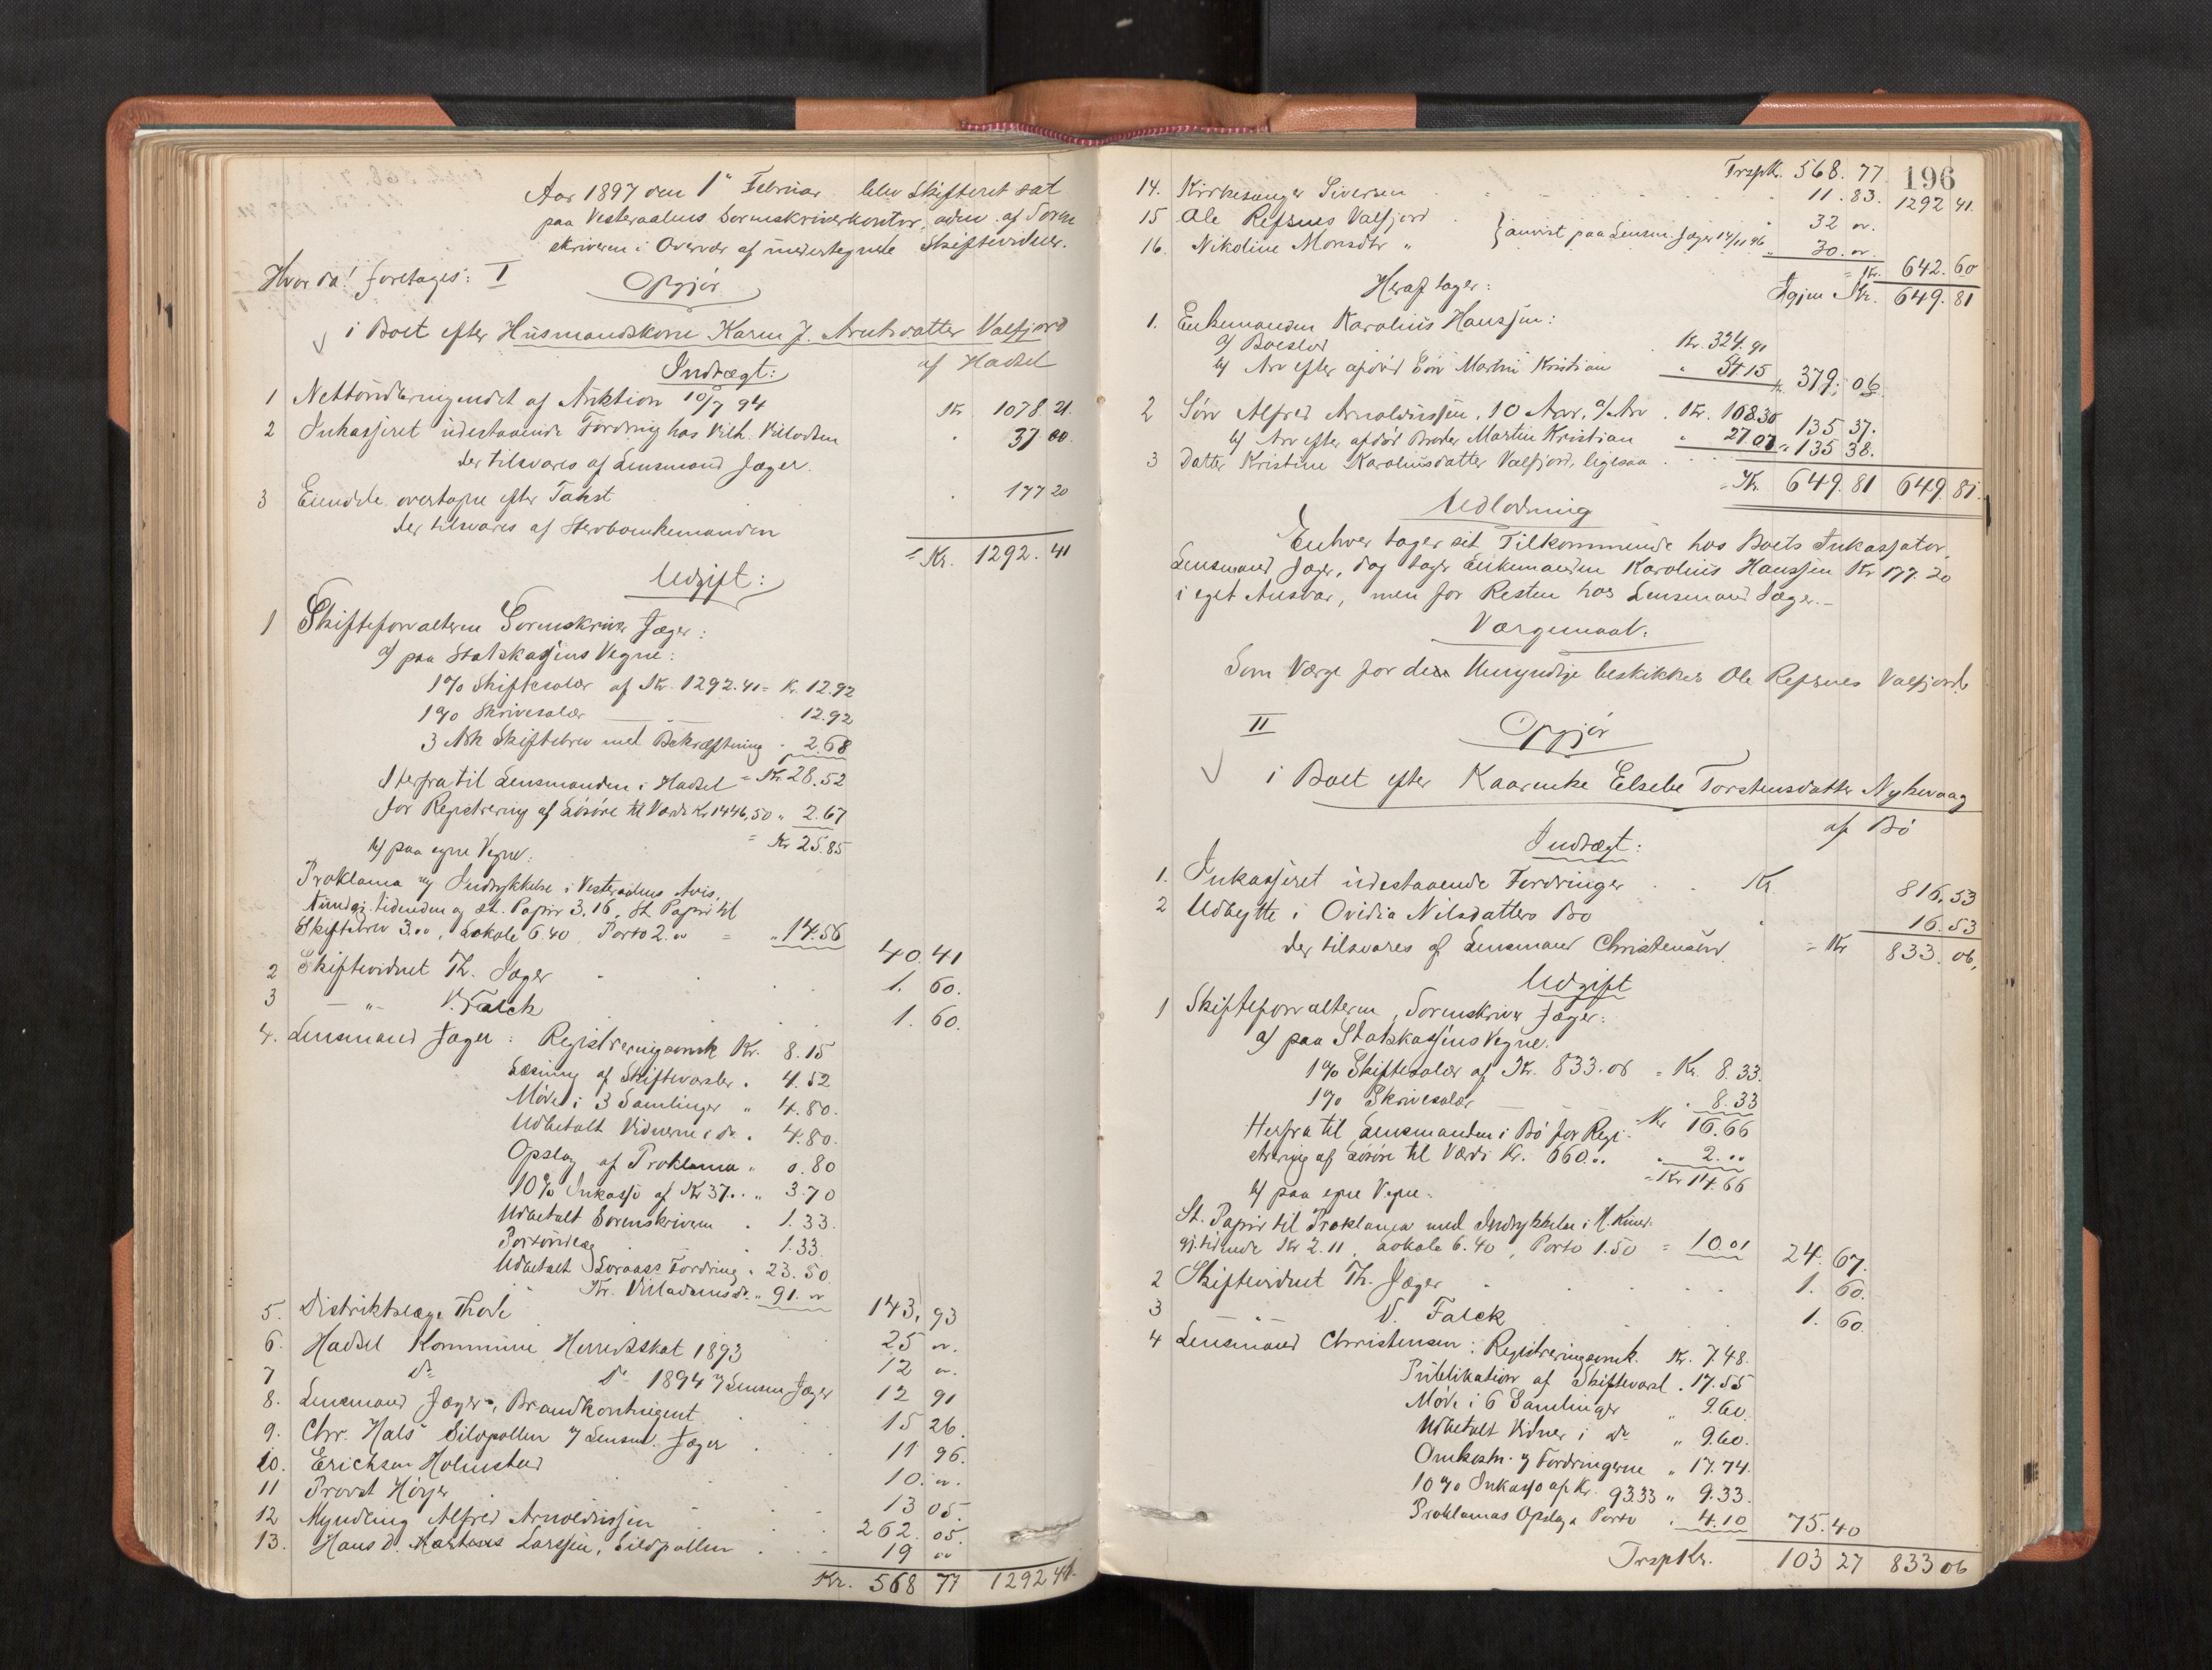 Aar 1897 den 1ste Februar blev Skifteret sat
paa Vesteraalens Sorenskriverkontor, adm. af Soren
skriveren i Overvær af undertegnede Skiftevidner.
Hvor da! foretages: I
Opgjør
i Boet efter Husmandskone Karen J. Arntsdatter Valfjord
af Hadsel
Indtægt:
1 Nettoudbringendet af Auktion 10/7 94 Kr. 1078.21.
2 Inkasseret udestaaende Fordring hos Vilh. Villadsen " 37.00.
der tilsvares af Lensmand Jæger.
3 Eiendele overtagne efter Takst " 177 20
der tilsvares af Stervboenkemanden
= Kr. 1292.41
Udgift:
1 Skifteforvalteren Sorenskriver Jæger:
a) paa Statskassens Vegne:
1% Skiftesalær af Kr. 1292.41 = Kr. 12.92
1% Skrivesalær — " 12.92
3 Ark Skiftebrev med Bekræftning " 2.68
Herfra til Lensmanden i Hadsel = Kr. 28.52
for Registrering af Løsøre til Værdi Kr 1446,50 " 2.67
= Kr 25.85
b) paa egne Vegne:
Proklama og Indrykkelse i Vesteraalens Avis,
Kundgj. tidenden og st. Papir 3.16, St. Papir til
Skiftebrev 3.00, Lokale 6.40, Porto 2.00 = " 14.56
40.41
2 Skiftevidnet Th. Jæger 1. 60.
3 — " — V. Falck 1. 60.
4. Lensmand Jæger: Registreringsomk. Kr. 8.15
Læsning af Skiftevarsler " 4.52
Møde i 3 Samlinger " 4.80.
Udbetalt Vidnerne i do " 4.80.
Opslag af Proklama " 0.80
10% Inkasso af Kr 37.00 " 3.70
Udbetalt Sorenskriveren " 1.33.
Portoudlæg " 1.33.
Udbetalt Fordring " 23.50.
Kr. Villadsens do " 91. 00
143, 93
5. Distriktslæge Thode 25 00.
6. Hadsel Kommune Herredsskat 1893 12 00.
7 do do 1894 v/ Lensm Jæger 12 91
8. Lensmand Jæger, Brandkontingent 15 26.
9. Chr. Hals Sildpollen v/ Lensm. Jæger 11 96.
10. Erichsen Holmstad 10. 00.
11 Provst Høyer 13 05.
12 Myndling Alfred Arnoldussen 262. 05.
13. Hans D. Martinus Larssen, Sildpollen 19 00
Kr. 568 77 1292 41.
196
Trspk. 568. 77 1292 41.
14. Kirkesanger Siversen 11. 83.
15 Ole Refsnes Valfjord } anvist paa Lensm. Jæger 14/11 96 32 00.
16. Nikoline Monsdtr " " 30. 00.
= Kr. 642.60
Igjen Kr. 649. 81
Heraf tager:
1. Enkemanden Karolius Hanssen:
a) Boeslod Kr. 324.91
b) Arv efter afdød Søn Martin Kristian " 54 15 Kr 379. 06.
2 Søn Alfred Arnoldussen, 10 Aar, a/ Arv Kr. 108.30
b) Arv efter afdød Broder Martin Kristian " 27 07 " 135 37.
3 Datter Kristine Karoliusdatter Valfjord, ligesaa " 135 38.
= Kr. 649.81 649.81.
Udlodning
Enhver tager sit Tilkommende hos Boets Inkassator,
Lensmand Jæger, dog tager Enkemanden Karolius Hanssen Kr 177.20
i eget Ansvar, men for Resten hos Lensmand Jæger.—
Værgemaal:
Som Værge for den Umyndige beskikkes Ole Refsnes Valfjord.
II
Opgjør
i Boet efter Kaarenke Elsebe Torstensdatter Nykvaag
af Bø
Indtægt:
1. Inkasseret udestaaende Fordringer Kr. 816.53
2 Udbytte i Ovidia Nilsdatters Bo " 16.53
der tilsvares af Lensmand Christensen = Kr 833. 06,
Udgift
1 Skifteforvalteren, Sorenskriver Jæger:
a) paa Statskassens Vegne.
1% Skiftesalær af Kr. 833.06 = Kr. 8.33.
1% Skrivesalær — " 8.33
Kr 16.66
Herfra til Lensmanden i Bø for Regi-
strering af Løsøre til Værdi Kr. 660.00 " 2.00
= Kr 14.66
b) paa egne Vegne.
St. Papir til Proklama med Indrykkelse i N. Kund-
gj. tidende Kr 2.11, Lokale 6.40, Porto 1.50 = 10.01
24. 67.
2 Skiftevidnet Th. Jæger 1. 60.
3 " V. Falck 1. 60.
4 Lensmand Christensen: Registreringsomk. Kr. 7.48.
Publikation af Skiftevarsl. 17.55
Møde i 6 Samlinger " 9.60.
Udbetalt Vidner i do " 9.60.
Omkostn. v/ Fordringerne " 17.74.
10% Inkasso af Kr. 93.33 " 9.33.
Proklamas Opslag & Porto " 4.10
75.40
Trsp Kr. 103 27 833 06